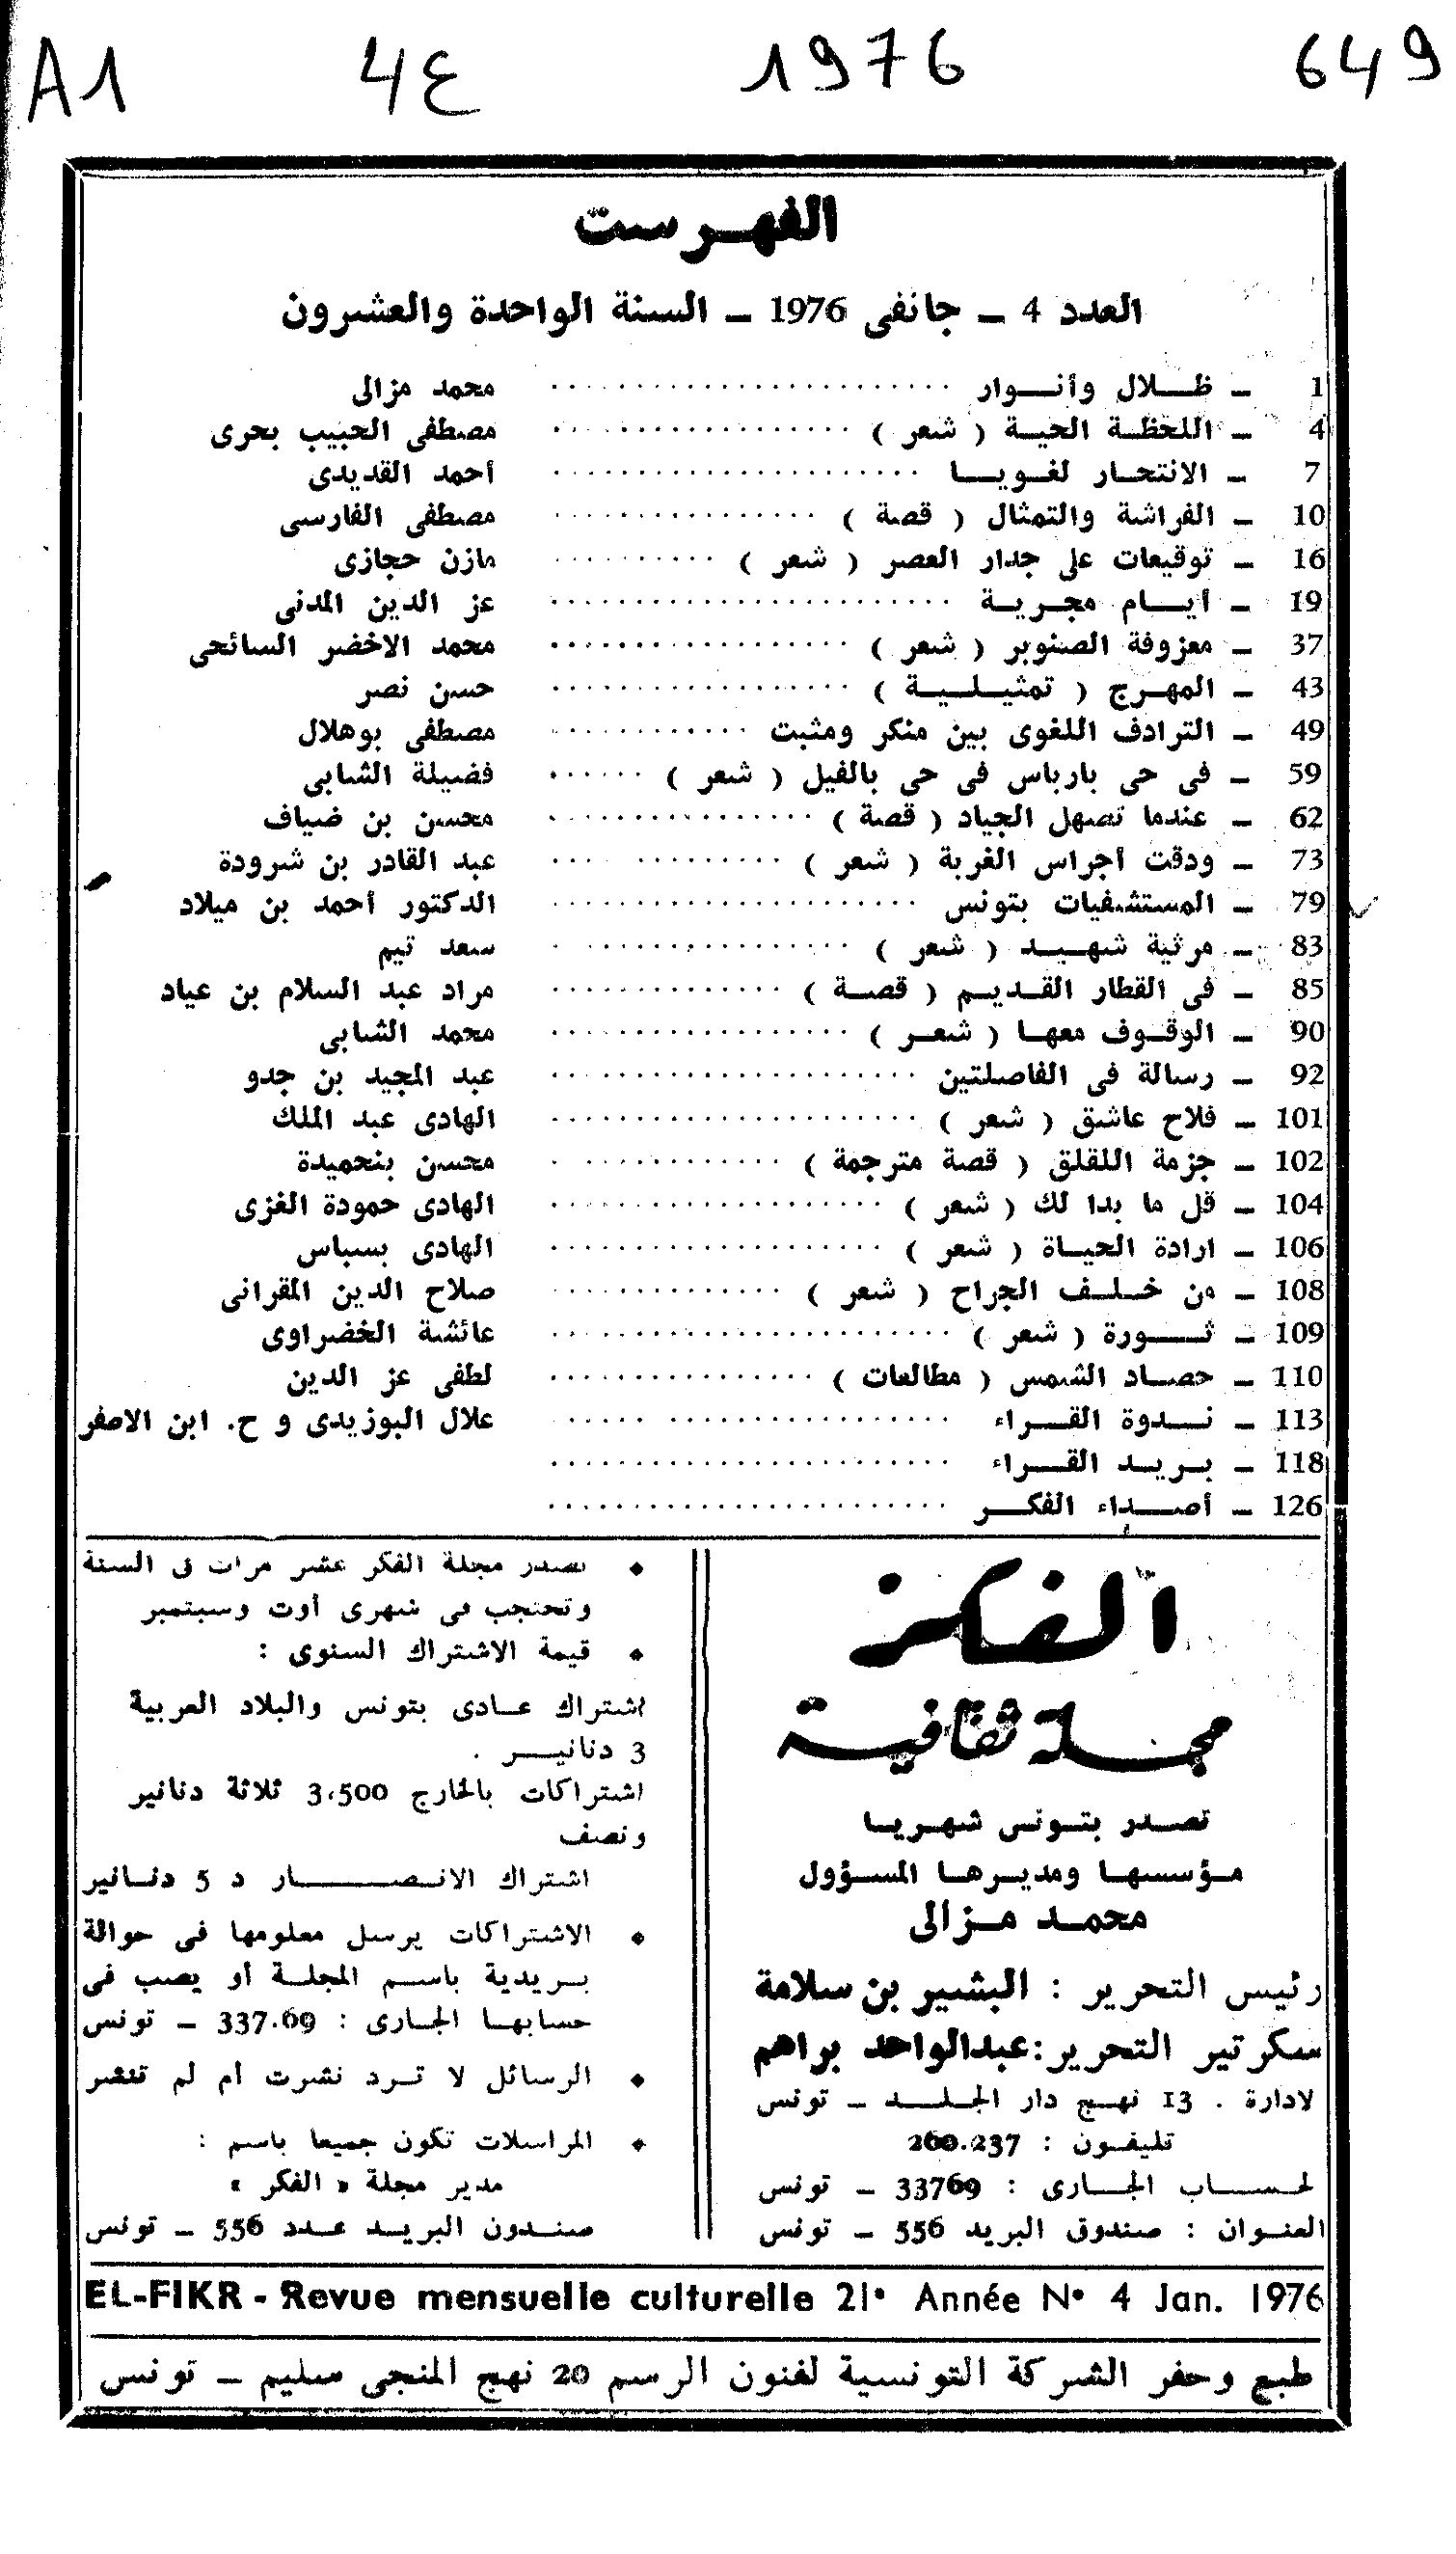 A1 4ع 1976 649
الفهرست
العدد 4 ـ جانفى 1976 ـ السنة الواحدة والعشرون
1 ـ ظلال وأنوار محمد مزالى
4 ـ اللحظة الحية ( شعر ) مصطفى الحبيب بحرى
7 ـ الانتحار لغويا أحمد القديدى
10 ـ الفراشة والتمثال ( قصة ) مصطفى الفارسى
16 ـ توقيعات على جدار العصر ( شعر ) مازن حجازى
19 ـ أيام مجرية عز الدين المدنى
37 ـ معزوفة الصنوبر ( شعر ) محمد الاخضر السائحى
43 ـ المهرج ( تمثيلية ) حسن نصر
49 ـ الترادف اللغوى بين منكر ومثبت مصطفى بوهلال
59 ـ فى حى بارباس فى حى بالفيل ( شعر ) فضيلة الشابى
62 ـ عندما تصهل الجياد ( قصة ) محسن بن ضياف
73 ـ ودقت أجراس الغربة ( شعر ) عبد القادر بن شرودة
79 ـ المستشفيات بتونس الدكتور أحمد بن ميلاد
83 ـ مرثية شهيد ( شعر ) سعد تيم
85 ـ فى القطار القديم ( قصة ) مراد عبد السلام بن عياد
90 ـ الوقوف معها ( شعر ) محمد الشابى
92 ـ رسالة فى الفاصلتين عبد المجيد بن جدو
101 ـ فلاح عاشق ( شعر ) الهادى عبد الملك
102 ـ جزمة اللقلق ( قصة مترجمة ) محسن بنحميدة
104 ـ قل ما بدا لك ( شعر ) الهادى حمودة الغزى
106 ـ ارادة الحياة ( شعر ) الهادى بسباس
108 ـ من خلف الجراح ( شعر ) صلاح الدين المقرانى
109 ـ ثورة ( شعر ) عائشة الخضراوى
110 ـ حصاد الشمس ( مطالعات ) لطفى عز الدين
113 ـ ندوة القراء علال البوزيدى و ح. ابن الاصفر
118 ـ بريد القراء
126 ـ أصداء الفكر
الفكر
مجلة ثقافية
تصدر بتونس شهريا
مؤسسها ومديرها المسؤول
محمد مزالى
رئيس التحرير : البشير بن سلامة
سكرتير التحرير : عبدالواحد براهم
لادارة . 13 نهج دار الجلد ـ تونس
تليفون : 260.237
لحساب الجارى : 33769 ـ تونس
العنوان : صندوق البريد 556 ـ تونس
♦ تصدر مجلة الفكر عشر مرات فى السنة
وتحتجب فى شهرى أوت وسبتمبر
♦ قيمة الاشتراك السنوى :
اشتراك عادى بتونس والبلاد العربية
3 دنانير .
اشتراكات بالخارج 3،500 ثلاثة دنانير
ونصف
اشتراك الانصار د 5 دنانير
♦ الاشتراكات يرسل معلومها فى حوالة
بريدية باسم المجلة أو يصب فى
حسابها الجارى : 337.69 ـ تونس
♦ الرسائل لا ترد نشرت أم لم تنشر
♦ المراسلات تكون جميعا باسم :
مدير مجلة « الفكر »
صندون البريد عدد 556 ـ تونس
EL-FIKR - Revue mensuelle culturelle 21• Année N• 4 Jan. 1976
طبع وحفر الشركة التونسية لفنون الرسم 20 نهج المنجى سليم ـ تونس